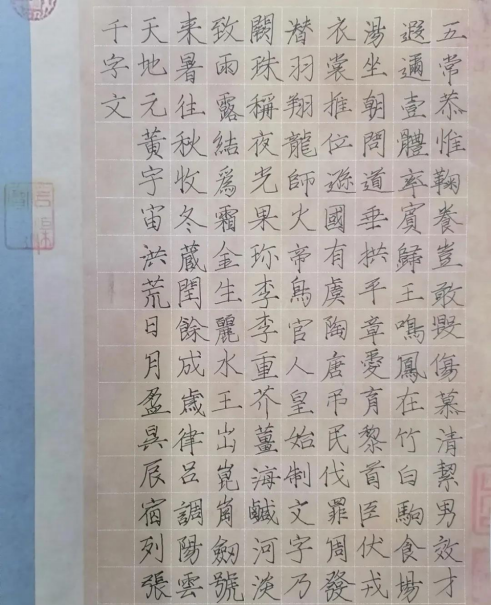 千字文
天地元黃宇宙洪荒日月盈昃辰宿列張
来暑往秋收冬蔵閏餘成歲律呂調陽雲
致雨露結爲霜金生麗水王出崑崗劒號
闕珠稱夜光果珎李李重芥薑海鹹河淡
潛羽翔龍師火帝鳥官人皇始制文字乃
衣裳推位遜國有虞陶唐吊民伐罪周發
湯坐朝問道垂拱平章愛育黎首臣伏戎
遐邇壹體率賓歸王鳴鳳在竹白駒食場
五常恭惟鞠養豈敢毀傷慕清絜男效才